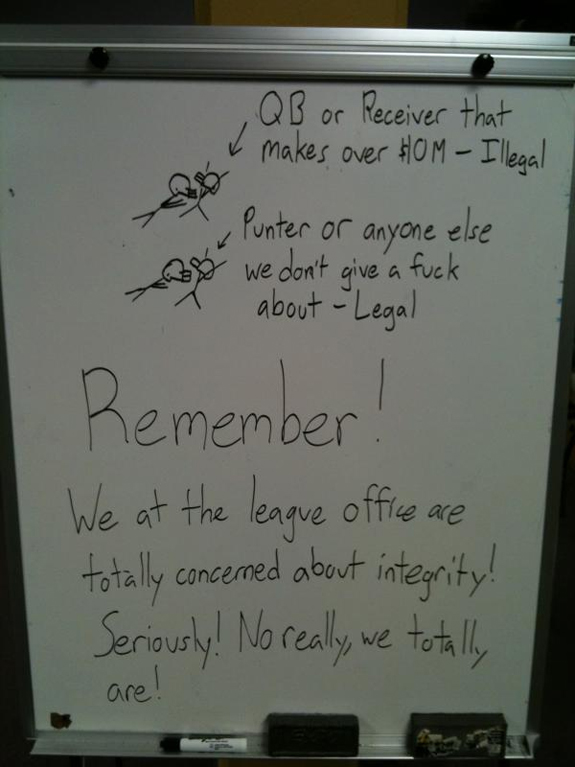 QB or Receiver that
makes over $10M - Illegal
Punter or anyone else
we don't give a fuck
about - Legal
Remember!
We at the league office are
totally concerned about integrity!
Seriously! No really, we totally
are!